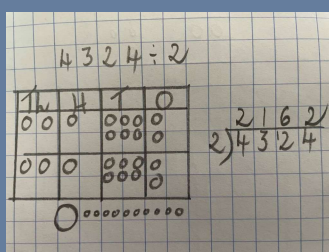 4324÷2
Th H T O
2162
2)4324